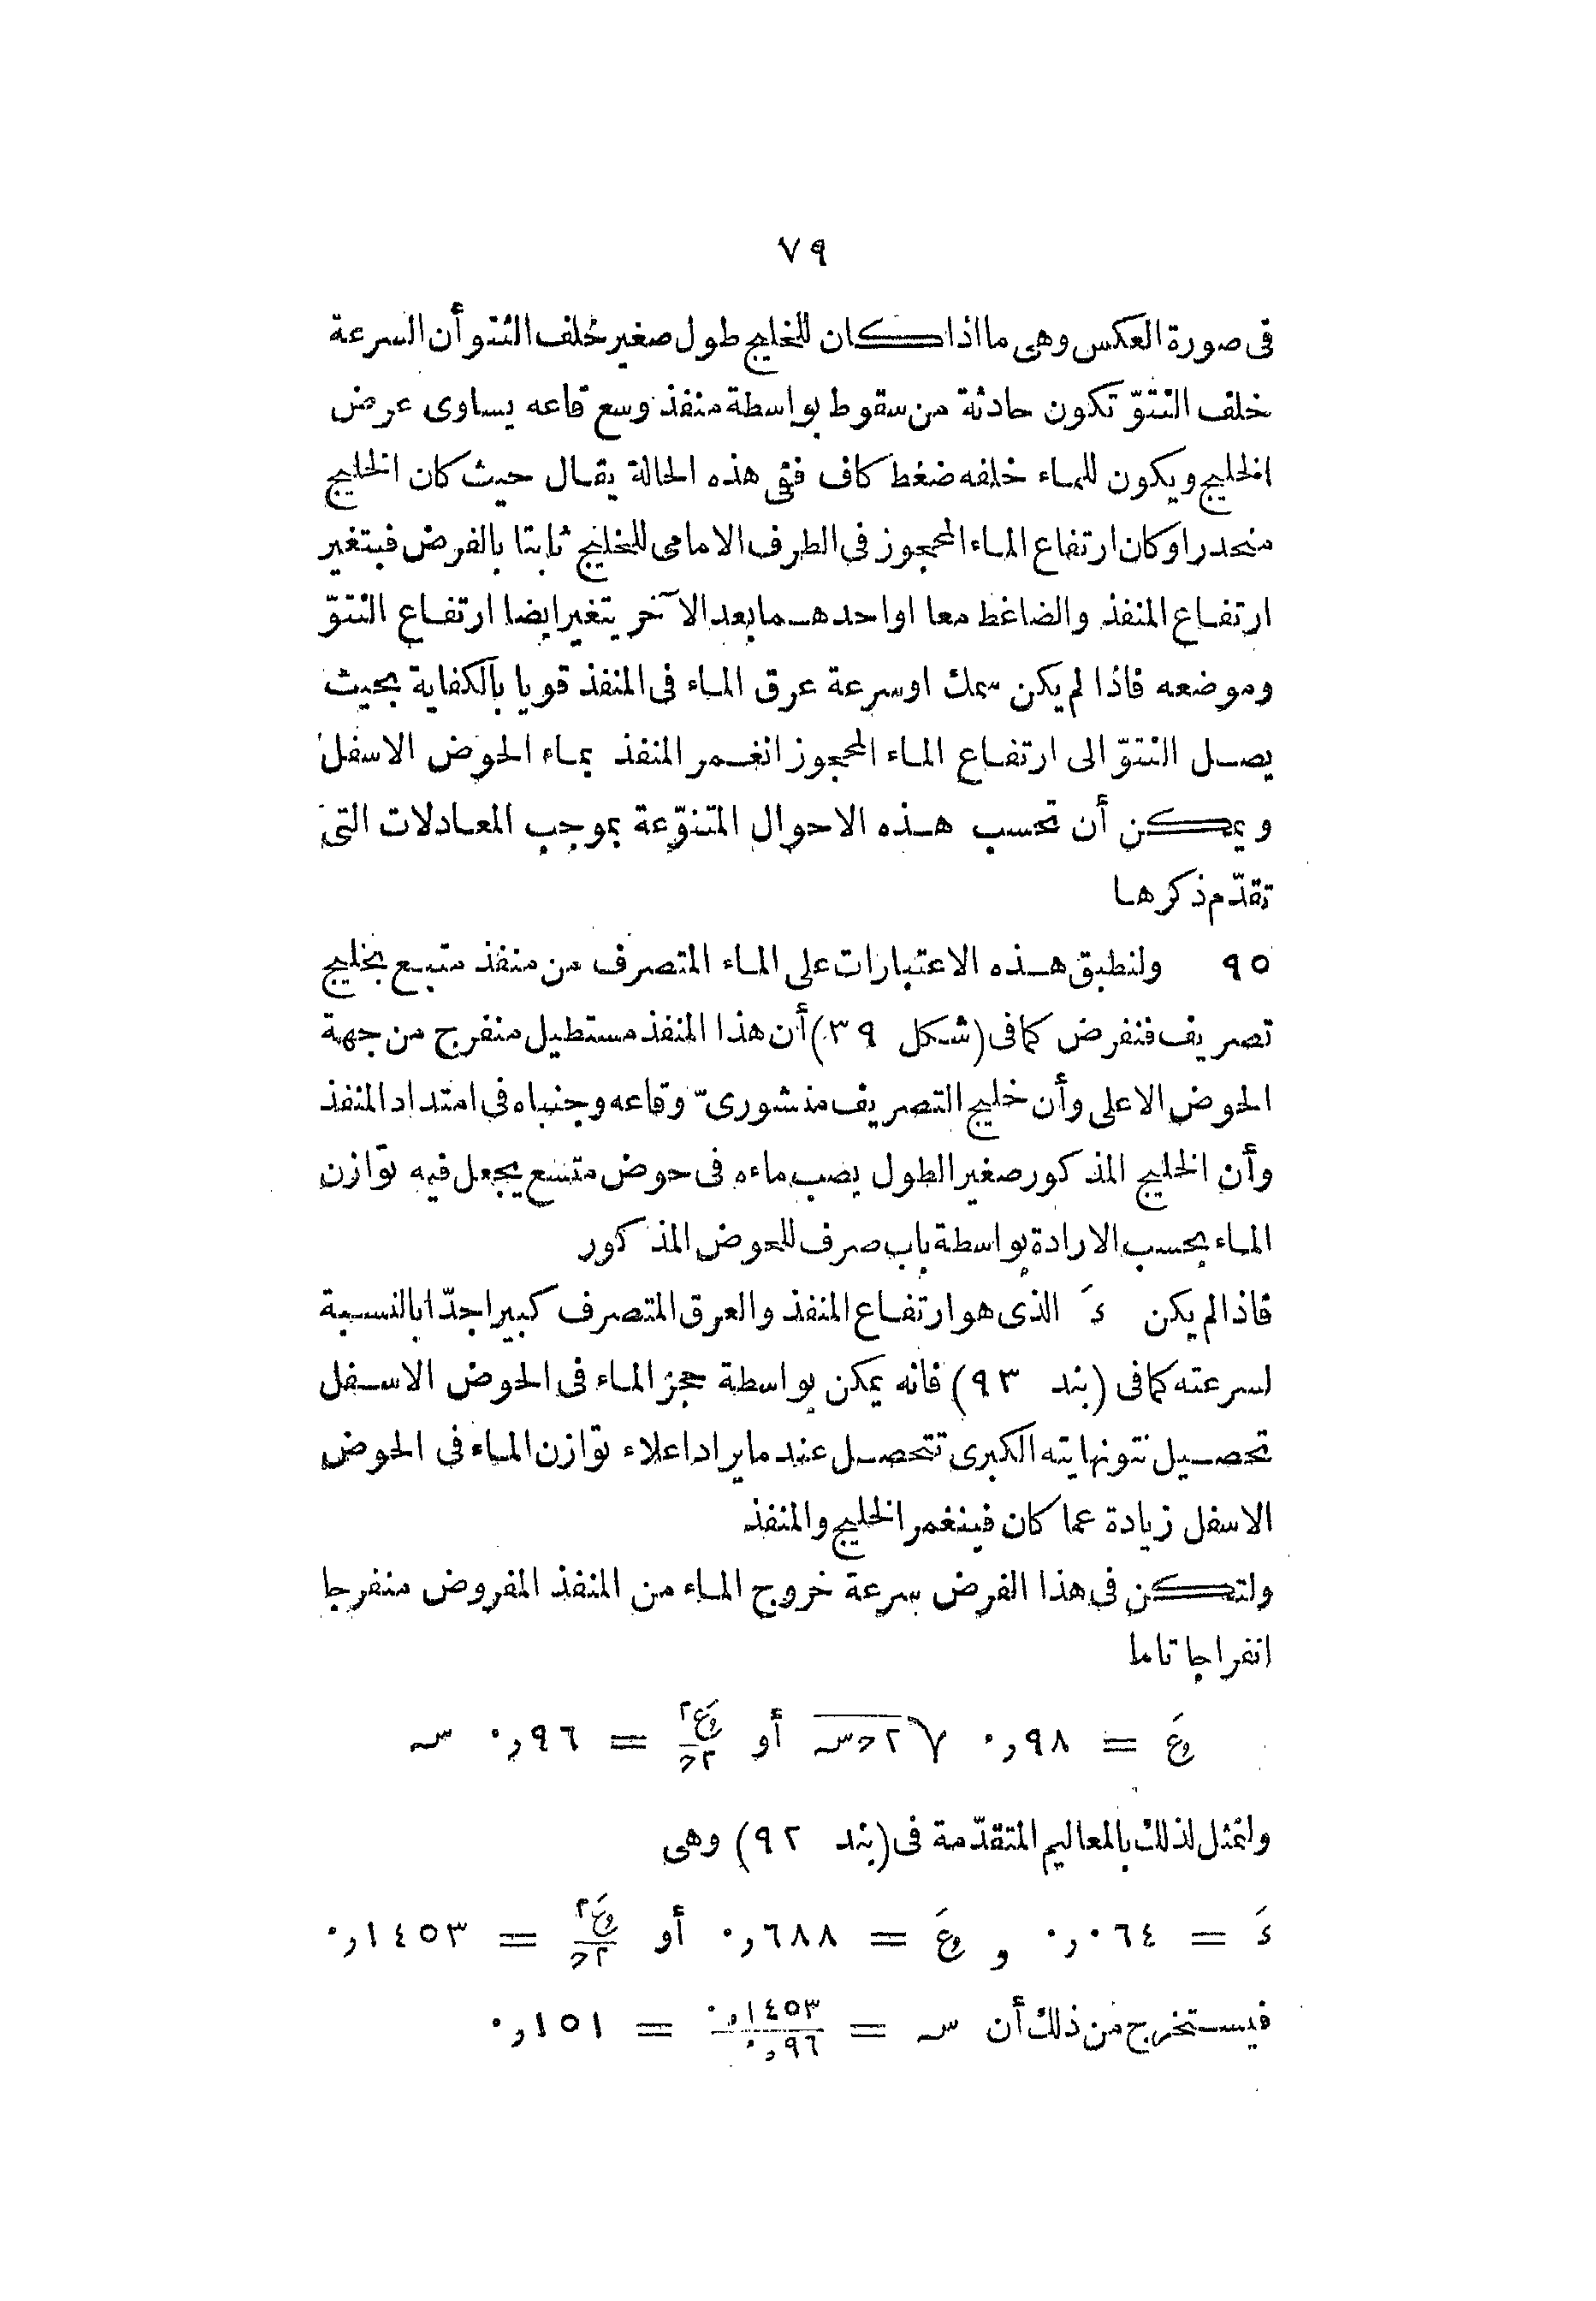 ٧٩
فى صورة العكس وهى ما اذا كان للخليج طول صغير خلف النتو أن السرعة
خلف النتوّ تكون حادثة من سقوط بواسطة منفذ وسع قاعه يساوى عرض
الخليج ويكون للماء خلفه ضغط كاف ففى هذه الحالة يقال حيث كان الخليج
منحدرا وكان ارتفاع الماء المحجوز فى الطرف الامامى للخليج ثابتا بالفرض فيتغير
ارتفاع المنفذ والضاغط معا او احدهما بعد الآخر يتغير ايضا ارتفاع النتوّ
وموضعه فاذا لم يكن سمك او سرعة عرق الماء فى المنفذ قويا بالكفاية بحيث
يصل النتوّ الى ارتفاع الماء المحجوز انغمر المنفذ بماء الحوض الاسفل
ويمكن أن تحسب هذه الاحوال المتنوّعة بموجب المعادلات التى
تقدّم ذكرها
٩٥ ولنطبق هذه الاعتبارات على الماء المتصرف من منفذ متبع بخليج
تصريف فنفرض كما فى (شكل ٣٩) أن هذا المنفذ مستطيل منفرج من جهة
الحوض الاعلى وأن خليج التصريف منشورىّ وقاعه وجنباه فى امتداد المنفذ
وأن الخليج المذكور صغير الطول يصب ماءه فى حوض متسع يجعل فيه توازن
الماء بحسب الارادة بواسطة باب صرف للحوض المذكور
فاذا لم يكن ءَ الذى هو ارتفاع المنفذ والعرق المتصرف كبيرا جدّا بالنسبة
لسرعته كما فى (بند ٩٣) فانه يمكن بواسطة حجز الماء فى الحوض الاسفل
تحصيل نتو نهايته الكبرى تتحصل عند ما يراد اعلاء توازن الماء فى الحوض
الاسفل زيادة عما كان فينغمر الخليج والمنفذ
ولتكن فى هذا الفرض سرعة خروج الماء من المنفذ المفروض منفرجا
انفراجا تاما
عَ = ٠٫٩٨ √٢حس أو عَ٢/٢ح = ٠٫٩٦ س
ولنمثل لذلك بالمعاليم المتقدّمة فى (بند ٩٢) وهى
ءَ = ٠٫٠٦٤ و عَ = ٠٫٦٨٨ أو عَ٢/٢ح = ٠٫١٤٥٣
فيستخرج من ذلك أن س = ٠٫١٤٥٣/٠٫٩٦ = ٠٫١٥١